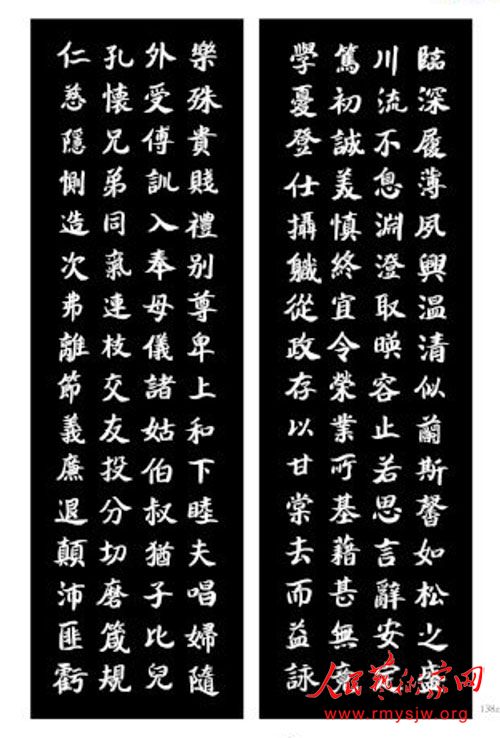 臨深履薄夙興温清似蘭斯馨如松之盛
川流不息淵澄取暎容止若思言辭安定
篤初誠美慎終宜令榮業所基藉甚無竟
學憂登仕攝軄從政存以甘棠去而益詠
樂殊貴賤禮别尊卑上和下睦夫唱婦隨
外受傅訓入奉母儀諸姑伯叔猶子比兒
孔懷兄弟同氣連枝交友投分切磨箴規
仁慈隱惻造次弗離節義廉退顛沛匪虧
人民艺术家网
www.rmysjw.org